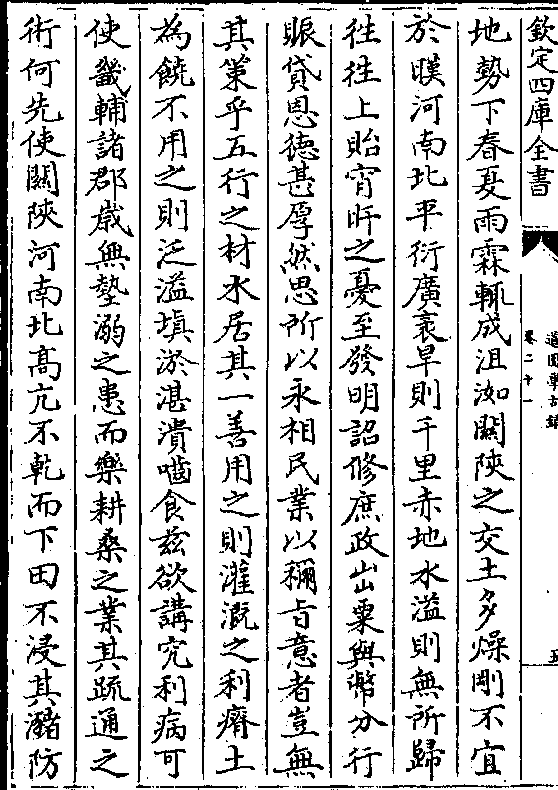 欽定四庫全書
道園學古錄
卷二十一
五
地勢下春夏雨霖輒成沮洳關陜之交土多燥剛不宜
於暵河南北平衍廣袤旱則千里赤地水溢則無所歸
往往上貽宵旰之憂至發明詔修庶政出粟與幣分行
賑貸恩德甚厚然思所以永相民業以稱旨意者豈無
其策乎五行之材水居其一善用之則灌溉之利瘠土
為饒不用之則泛溢填淤湛潰囓食茲欲講究利病可
使畿輔諸郡歲無墊溺之患而樂耕桑之業其疏通之
術何先使關陜河南北高亢不乾而下田不浸其瀦防